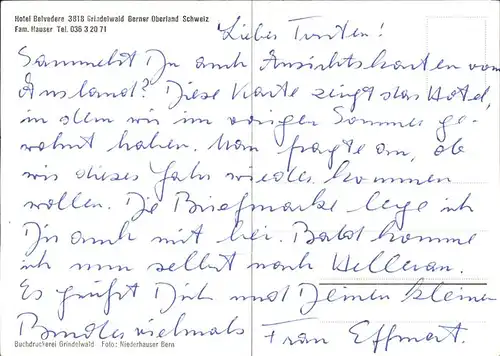 Hotel Belvedere 3818 Grindelwald Berner Oberland Schweiz
Fam. Hauser Tel. 036 3 20 71
Liebes
Sammelst Du auch Ansichtskarten vom
Ausland? Diese Karte zeigt das Hotel,
in dem wir im vorigen Sommer ge-
wohnt haben. Man fragte an, ob
wir dieses Jahr wieder kommen
wollen. Die Briefmarke lege ich
Dir auch mit bei. Bald komme
ich nun selbst nach Hellerau.
Es grüßt Dich und Deinen kleinen
Bruder vielmals Frau Effmert.
Buchdruckerei Grindelwald Foto: Niederhauser Bern